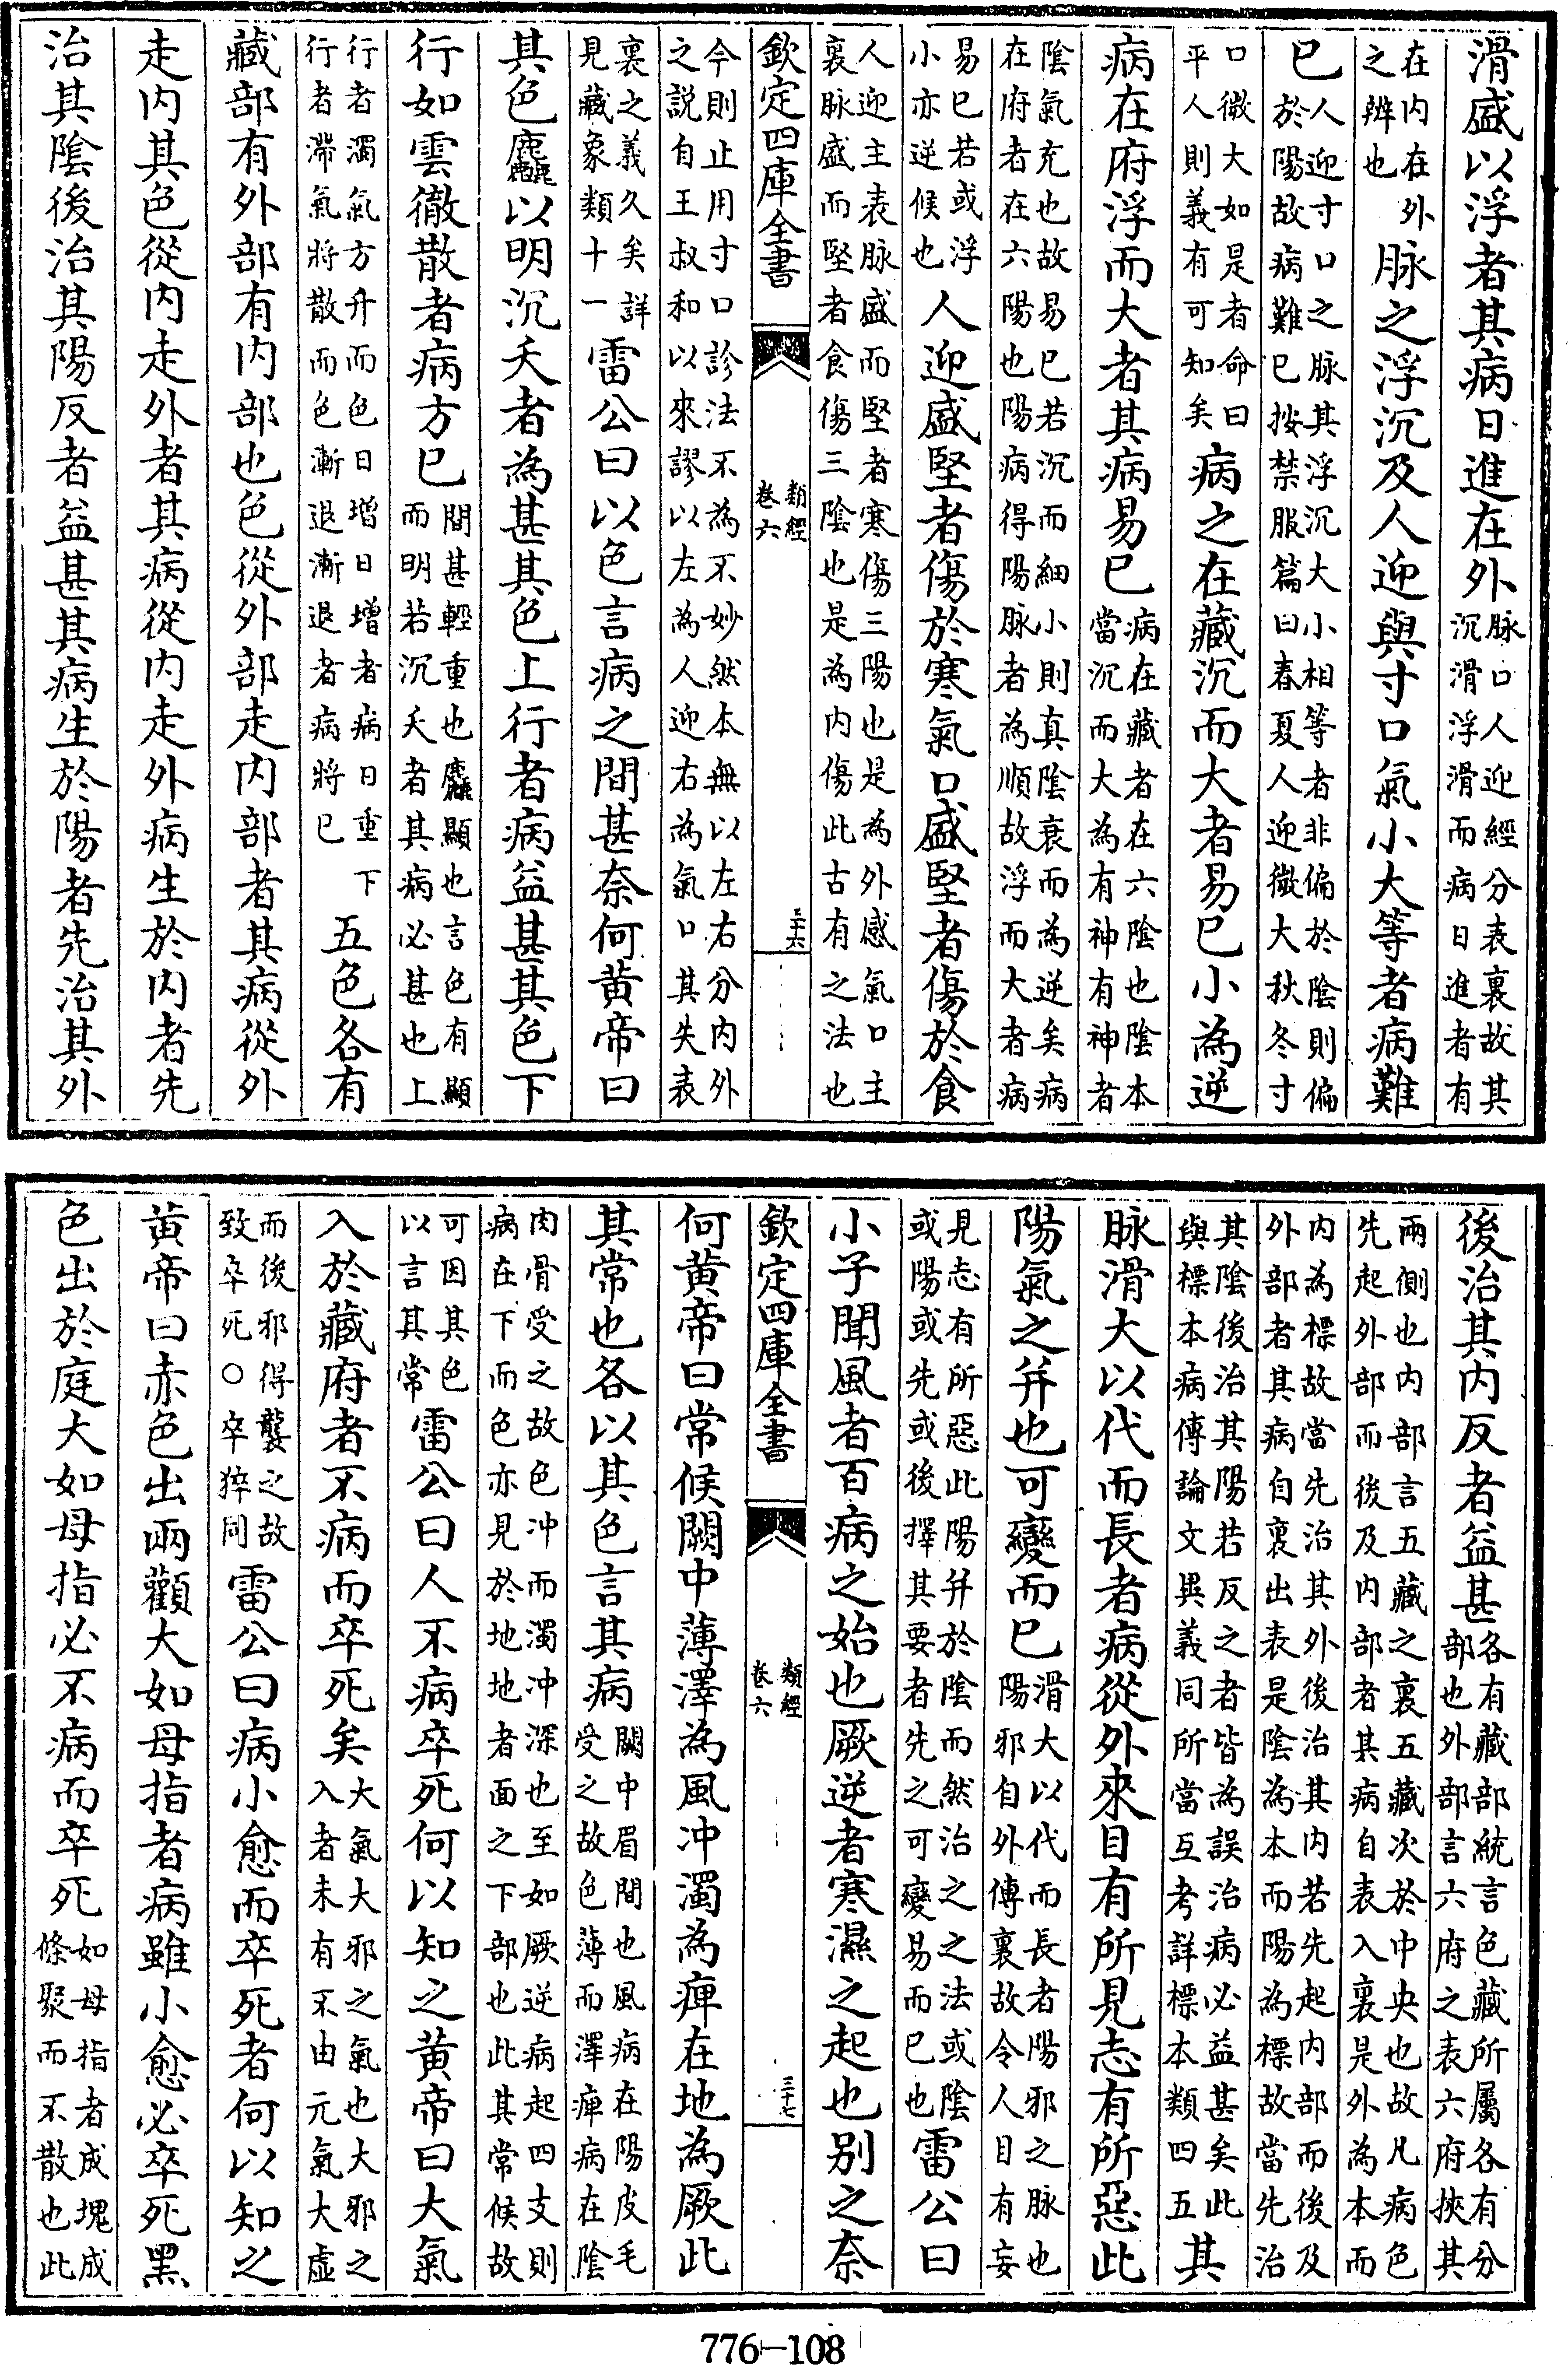 滑盛以浮者其病日進在外脉口人迎經分表裏故其沉滑浮滑而病日進者有
在内在外之辨也脉之浮沉及人迎與寸口氣小大等者病難
已人迎寸口之脉其浮沉大小相等者非偏於陰則偏於陽故病難已按禁服篇曰春夏人迎微大秋冬寸
口微大如是者命曰平人則義有可知矣病之在藏沉而大者易已小為逆
病在府浮而大者其病易已病在藏者在六陰也陰本當沉而大為有神有神者
陰氣充也故易已若沉而細小則真陰衰而為逆矣病在府者在六陽也陽病得陽脉者為順故浮而大者病
易已若或浮小亦逆候也人迎盛堅者傷於寒氣口盛堅者傷於食
人迎主表脉盛而堅者寒傷三陽也是為外感氣口主裏脉盛而堅者食傷三陰也是為内傷此古有之法也
欽定四庫全書 類經 卷六 三十六
今則止用寸口診法不為不妙然本無以左右分内外之説自王叔和以來謬以左為人迎右為氣口其失表
裏之義久矣詳見藏象類十一雷公曰以色言病之間甚奈何黄帝曰
其色麤以明沉夭者為甚其色上行者病益甚其色下
行如雲徹散者病方已間甚輕重也麤顯也言色有顯而明若沉夭者其病必甚也上
行者濁氣方升而色日增日增者病日重下行者滯氣將散而色漸退漸退者病將已五色各有
藏部有外部有内部也色從外部走内部者其病從外
走内其色從内走外者其病從内走外病生於内者先
治其陰後治其陽反者益甚其病生於陽者先治其外
後治其内反者益甚各有藏部統言色藏所屬各有分部也外部言六府之表六府挾其
兩側也内部言五藏之裏五藏次於中央也故凡病色先起外部而後及内部者其病自表入裏是外為本而
内為標故當先治其外後治其内若先起内部而後及外部者其病自裏出表是陰為本而陽為標故當先治
其陰後治其陽若反之者皆為誤治病必益甚矣此與標本病傳論文異義同所當互考詳標本類四五其
脉滑大以代而長者病從外來目有所見志有所惡此
陽氣之并也可變而已滑大以代而長者陽邪之脉也陽邪自外傳裏故令人目有妄
見志有所惡此陽并於陰而然治之之法或陰或陽或先或後擇其要者先之可變易而已也雷公曰
小子聞風者百病之始也厥逆者寒濕之起也别之奈
欽定四庫全書 類經 卷六 三十七
何黄帝曰常候闕中薄澤為風冲濁為痺在地為厥此
其常也各以其色言其病闕中眉間也風病在陽皮毛受之故色薄而澤痺病在陰
肉骨受之故色冲而濁冲深也至如厥逆病起四支則病在下而色亦見於地地者面之下部也此其常候故
可因其色以言其常雷公曰人不病卒死何以知之黄帝曰大氣
入於藏府者不病而卒死矣大氣大邪之氣也大邪之入者未有不由元氣大虚
而後邪得襲之故致卒死○卒猝同雷公曰病小愈而卒死者何以知之
黄帝曰赤色出兩顴大如母指者病雖小愈必卒死黑
色出於庭大如母指必不病而卒死如母指者成塊成條聚而不散也此
776-108